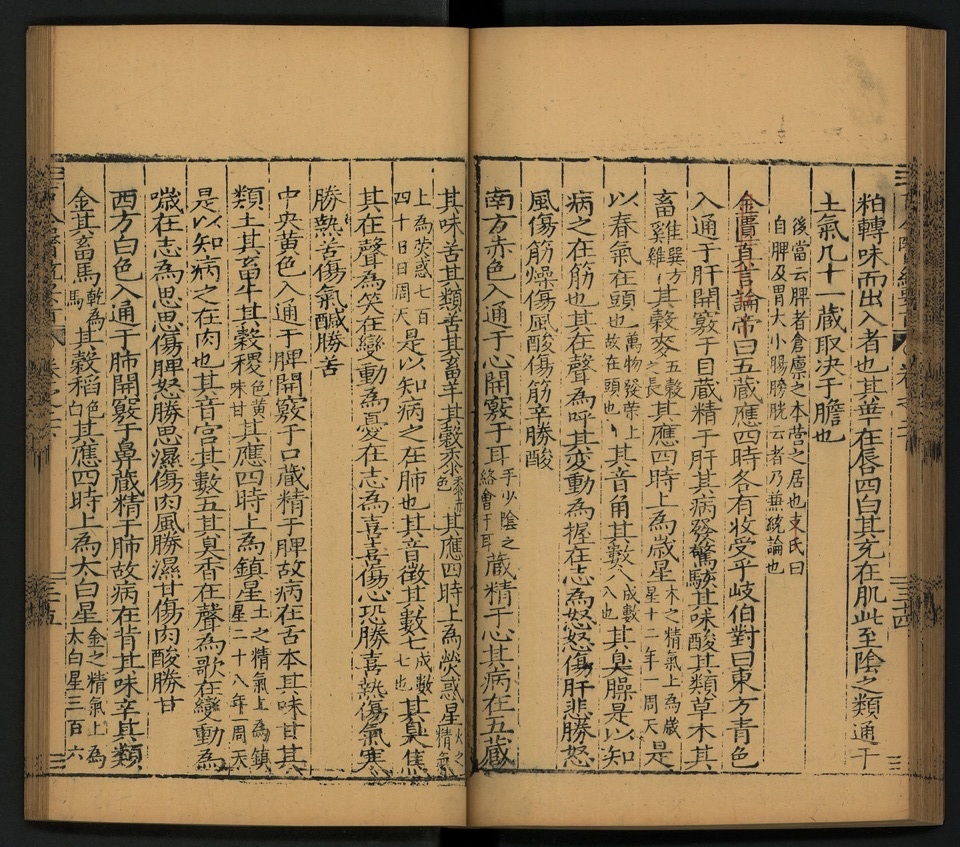 粕轉味而出入者也其華在唇四白其充在肌此至陰之類通于
土氣凡十一蔵取决于膽也
後當云脾者倉廪之本营之居也支氏曰
自脾及胃大小腸膀胱云者乃兼統論也
金匱真言論帝曰五蔵應四時各有收受乎歧伯對曰東方青色
入通于肝開竅于目蔵精于肝其病發驚駭其味酸其類草木其
畜雞巽方雞其穀麥五穀之長其應四時上為歳星木之精氣上為歳星十二年一周天是
以春氣在頭也萬物發荣上故在頭也其音角其數八成數八也其臭臊是以知
病之在筋也其在聲為呼其変動為握在志為怒怒傷肝悲勝怒
風傷筋燥傷風酸傷筋辛勝酸
南方赤色入通于心開竅于耳手少陰之絡會于耳蔵精于心其病在五蔵
其味苦其類苦其畜羊其穀黍黍赤色其應四時上為熒惑星火之精氣
上為荧惑七百四十日周天是以知病之在肺也其音徵其數七成數七也其臭焦
其在聲為笑在變動為憂在志為喜喜傷心恐勝喜熱傷氣寒
勝熱苦傷氣醎勝苦
中央黄色入通于脾開竅于口蔵精于脾故病在舌本其味甘其
類土其畜牛其穀稷色黄味甘其應四時上為鎮星土之精氣上為鎮星二十八年一周天
是以知病之在肉也其音宮其數五其臭香在聲為歌在變動為
噦在志為思思傷脾怒勝思濕傷肉風勝濕甘傷肉酸勝甘
西方白色入通于肺開竅于鼻蔵精于肺故病在背其味辛其類
金其畜馬乾為馬其穀稻色白其應四時上為太白星金之精氣上為太白星三百六